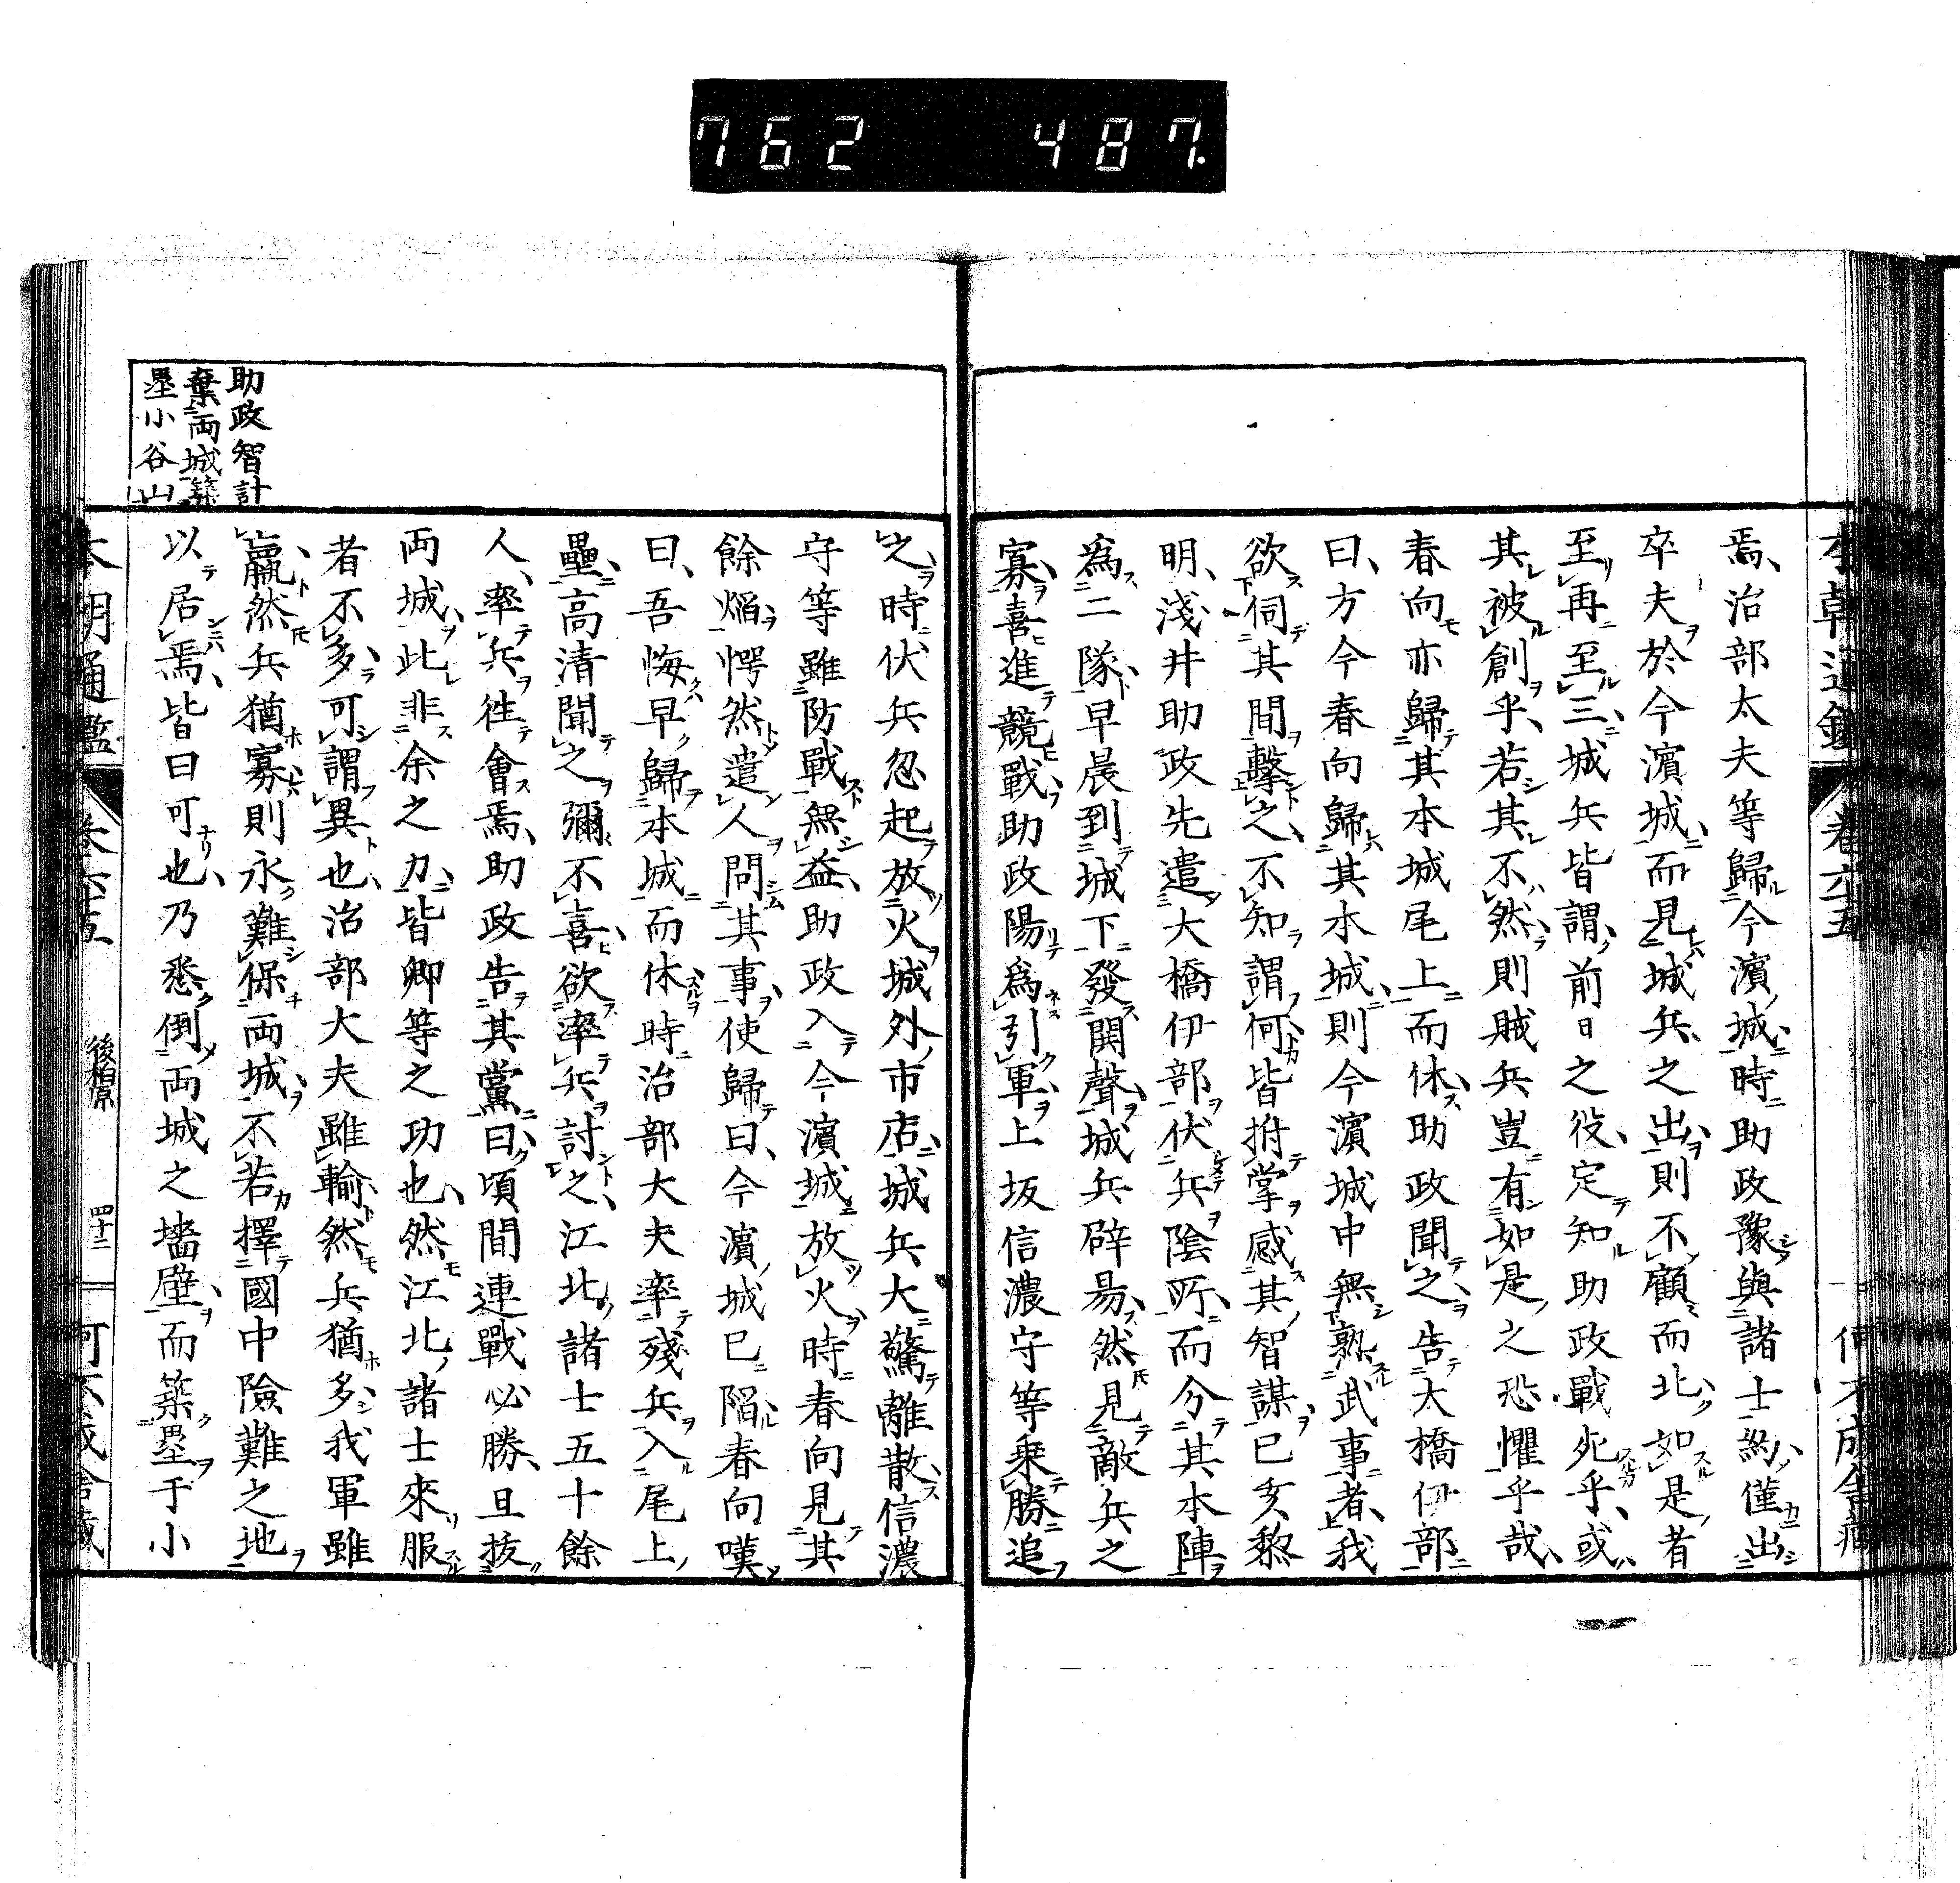 762 487
焉治部太夫等歸今濱城時助政豫與諸士約僅出
卒夫於今濱城而見城兵之出則不顧而北如是者
至再至三城兵皆謂前日之役定知助政戰死乎或
其被創乎若其不然則賊兵豈有如是之恐懼乎哉
春向亦歸其本城尾上而休助政聞之告大橋伊部
曰方今春向歸其本城則今濱城中無熟武事者我
欲伺其間擊之不知謂何皆拊掌感其智謀已亥黎
明淺井助政先遣大橋伊部伏兵陰所而分其本陣
爲二隊早晨到城下發鬨聲城兵辟易然見敵兵之
寡喜進競戰助政陽爲引軍上坂信濃守等乗勝追
之時伏兵忽起放火城外市店城兵大驚離散信濃
守等雖防戰無益助政入今濱城放火時春向見其
餘焔愕然遣人問其事使歸曰今濱城已陷春向嘆
曰吾悔早歸本城而休時治部大夫率殘兵入尾上
壘高清聞之彌不喜欲率兵討之江北諸士五十餘
人率兵徃會焉助政告其黨曰頃間連戰必勝且拔
両城此非余之力皆卿等之功也然江北諸士來服
者不多可謂異也治部大夫雖輸然兵猶多我軍雖
贏然兵猶寡則永難保両城不若擇國中險難之地
以居焉皆曰可也乃悉倒両城之墻壁而築壘于小
助政智計
棄両城築
壘小谷山
後柏原
四十二